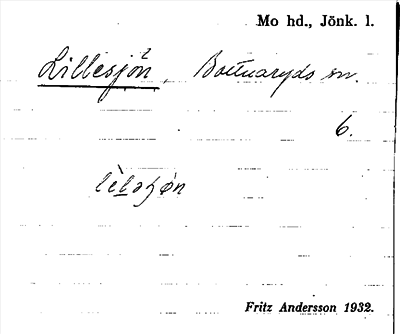 Mo hd., Jönk. l.
Lillesjön, Bottnaryds sn.
6.
Fritz Andersson 1932.